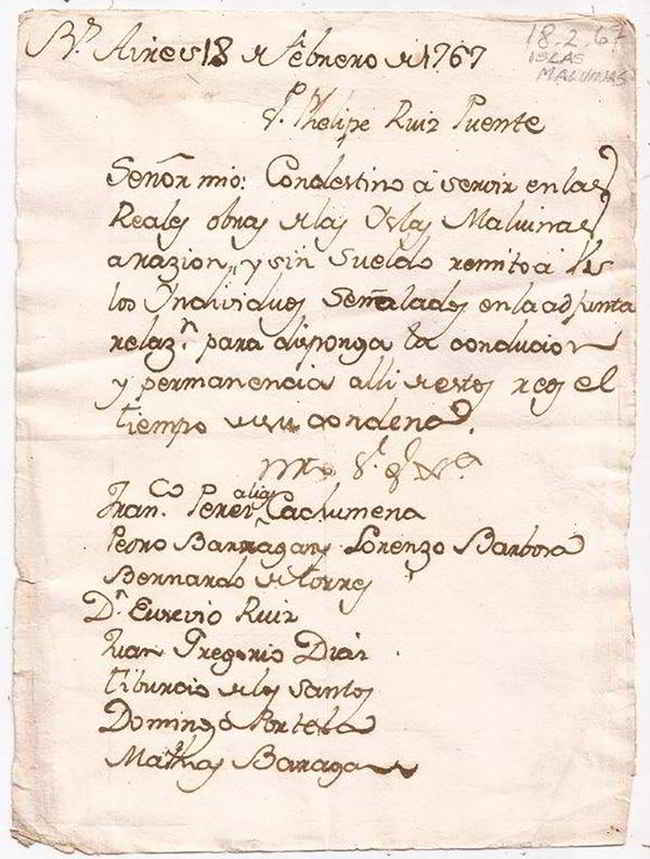 B.s Aires 18 de Febrero de 1767
18.2.67
ISLAS
MALVINAS
S.r D.n Phelipe Ruiz Puente
Señor mio: Con destino á servir en las
Reales obras de las Yslas Malvinas
a razion, y sin Sueldo remito á
los Yndividuos Señalados en la adjunta
relaz.n para disponga la conducion
y permanencia alli de estos reos el
tiempo de su condena.
Fran.co Perez alias Cachumena
Pedro Barragan, Lorenzo Barbosa
Bernardo de torres
D.n Eusevio Ruiz
Juan Gregorio Dias
tiburcio de los Santos
Domingo Portela
Mathias Barragan